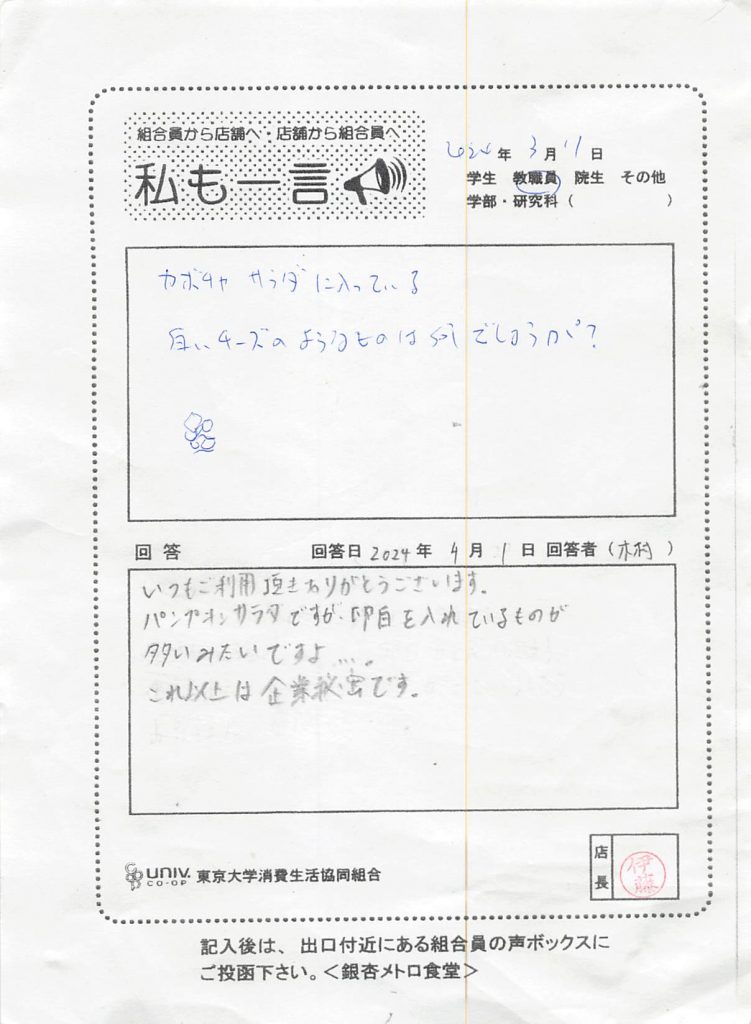 組合員から店舗へ・店舗から組合員へ
私も一言
2024年 3月 11日
学生 教職員 院生 その他
学部・研究科（ ）
カボチャ サラダに入っている
白いチーズのようなものは何でしょうか?
回答 回答日 2024年 4月 1日 回答者（木村）
いつもご利用頂きありがとうございます。
パンプキンサラダですが、卵白を入れているものが
多いみたいですよ...。
これ以上は企業秘密です。
店長
伊藤
UNIV. CO-OP 東京大学消費生活協同組合
記入後は、出口付近にある組合員の声ボックスに
ご投函下さい。＜銀杏メトロ食堂＞